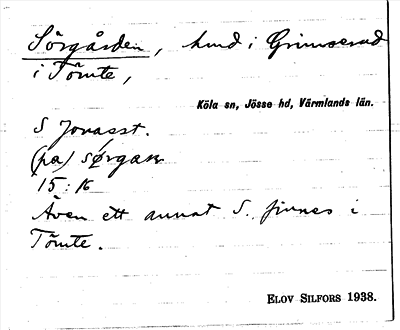 Sörgården, hmd i Grimserud
i Tömte,
Köla sn, Jösse hd, Värmlands län.
S Jonasst.
(pa) sørgaɷ
15:16
Även ett annat S. finnes i
Tömte.
ELOV SILFORS 1938.